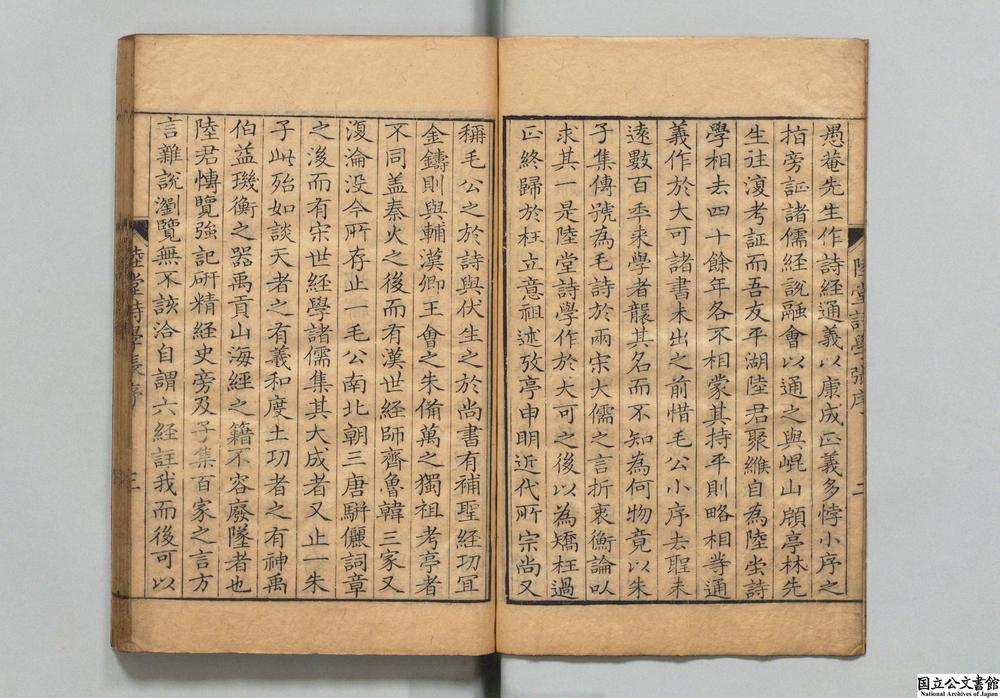 愚菴先生作詩經通義以康成正義多悖小序之
指旁証諸儒經説融會以通之與崐山頋亭林先
生往復考証而吾友平湖陸君聚緱自為陸堂詩
學相去四十餘年各不相蒙其持平則略相等通
義作於大可諸書未出之前惜毛公小序去聖未
遠數百年来學者襲其名而不知為何物竟以朱
子集傳號為毛詩於兩宋大儒之言折衷衡論以
求其一是陸堂詩學作於大可之後以為矯枉過
正終歸於枉立意祖述攷亭申明近代所宗尚又
陸堂詩學張序
二
稱毛公之於詩與伏生之於尚書有補聖経功冝
金鑄則與輔漢卿王會之朱備萬之獨祖考亭者
不同盖秦火之後而有漢世経師齊魯韓三家又
復淪没今所存止一毛公南北朝三唐駢儷詞章
之後而有宋世経學諸儒集其大成者又止一朱
子此殆如談天者之有羲和度土功者之有神禹
伯益璣衡之器禹貢山海經之籍不容廢墜者也
陸君愽覽強記研精経史旁及子集百家之言方
言雜説瀏覽無不該洽自謂六経註我而後可以
陸堂詩學張序
三
国立公文書館
National Archives of Japan